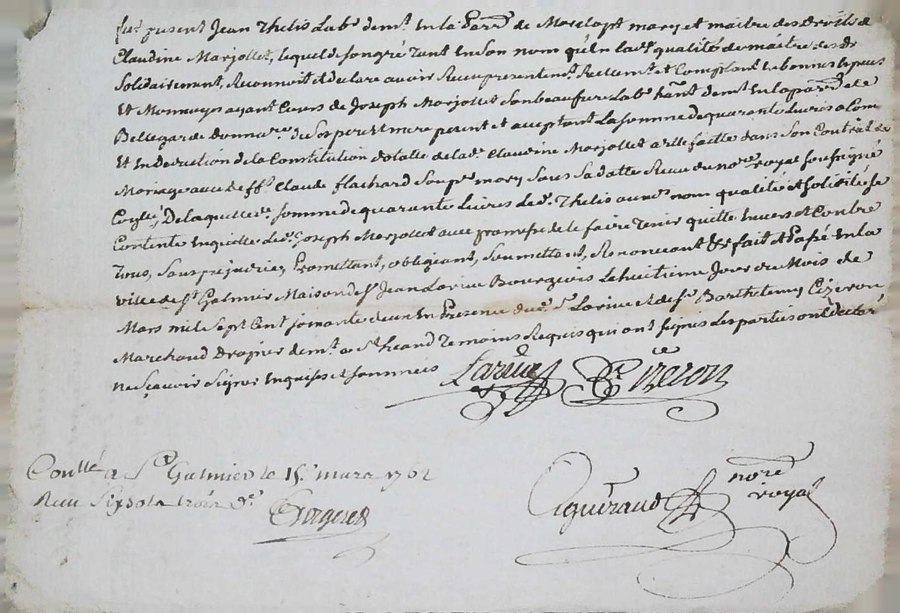 fut présent Jean Thelis Lab.r demt. en la Parr.sse de Marclopt mary et maitre des droits de
Claudine Marjollet, lequel de son gré tant en son nom qu'en la ditte qualité de maitre des dr.
Solidairement, Reconnoit et declare avoir Receu presentemt. Reellemt. et Comptant le bonnes Especes
Et Monnoyes ayant Cours de Joseph Marjollet son beau frere Lab.r hant. demt. en la parr.sse de
Bellegarde donnat.re de Ses pere et mere present et acceptant La somme de quarante Livres a Compte
Et en Deduction de la Constitution dotalle de lad.e Claudine Marjollet a elle faitte dans Son Contrat de
Mariage avec deff.t Claude flachard Son p.r mary Sous Sa datte Receu du no.re royal Soussigné
De laquelle somme de quarante Livres led.t Thelis aud. nom qualité et solidité se
Contente en quitte led.t Joseph Marjollet avec promesse de le faire Tenir quitte envers et Contre
Tous, Sans prejudice, Promettant, obligeant, Soumettant, Renonceant &c fait et Passé en la
ville de St. Galmier Maison de Sr. Jean Larive Bourgeois Le huitieme Jour du Mois de
Mars mil Sept Cent soixante deux en Presence dud. Sr. Larive et de Sr. Barthelemy Cizeron
Marchand drapier demt. a St. heand Temoins Requis qui ont signés Les parties ont declaré
ne Sçavoir Signer Enquises et Sommées
Larive Bt. Cizeron
Conllé a St. Galmier le 15e. mars 1762
Receu Six sols trois d.
Aguiraud no.re royal